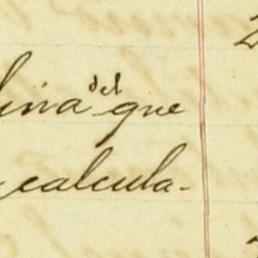 lina del que
calcula-